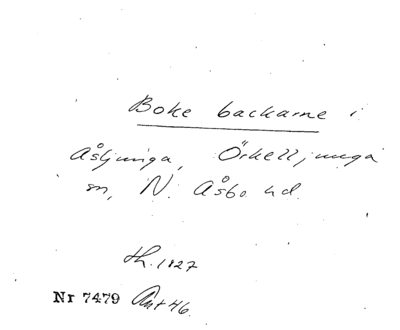 Boke backarne i
Åsljunga, Örkelljunga
sn, N. Åsbo hd.
th. 1827
Nr 7479 Ant 46.